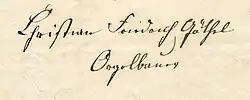 Christian Friedrich Göthel
Orgelbauer